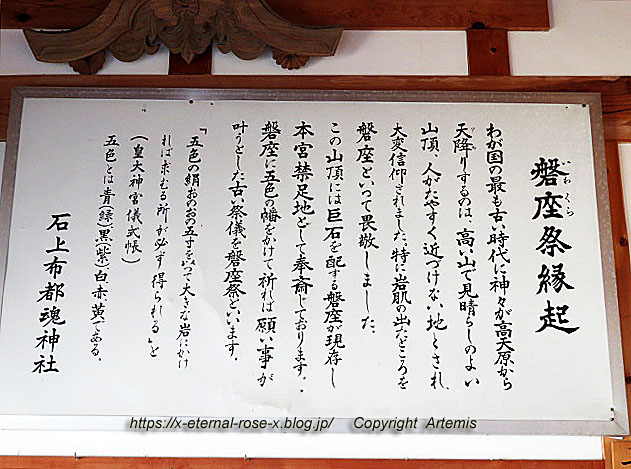 磐座祭縁起
いわくら
わが国の最も古い時代に神々が高天原から
天降りするのは、高い山で見晴らしのよい
山頂、人がたやすく近づけない地とされ、
大変信仰されました。特に岩肌の出たところを
磐座といって畏敬しました。
この山頂には巨石を配する磐座が現存し
本宮禁足地として奉斎しております。
磐座に五色の幡をかけて祈れば願い事が
叶うとした古い祭儀を磐座祭といいます。
「五色の絹おのおの五寸をいつて大きな岩にかけ
れば求むる所が必ず得られる」と
(皇大神宮儀式帳)
五色とは青(緑)黒(紫)白赤黄である。
石上布都魂神社
https://x-eternal-rose-x.blog.jp/ Copyright Artemis